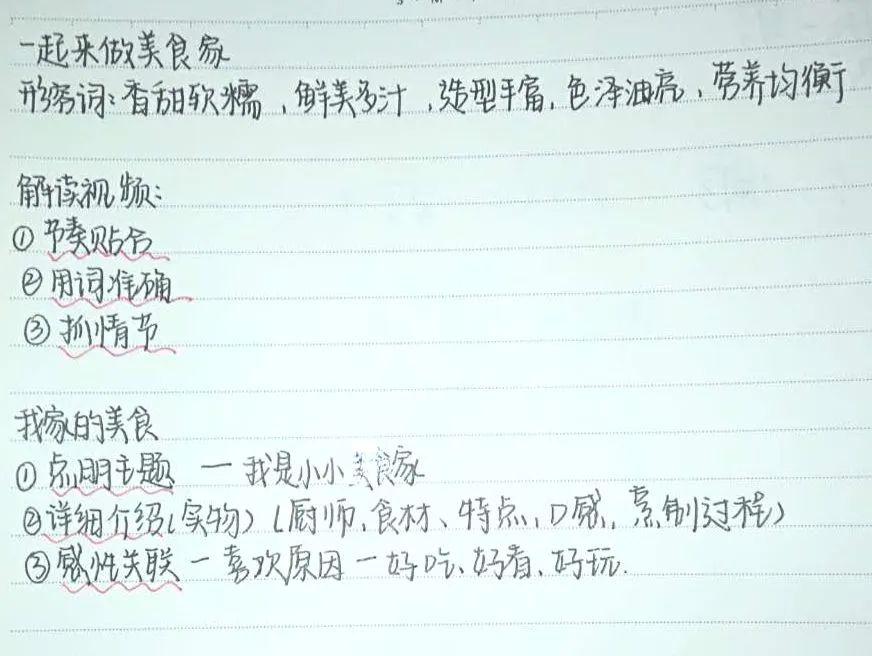 一起来做美食家
形容词:香甜软糯、鲜美多汁、造型丰富、色泽油亮、营养均衡
解读视频:
① 节奏贴合
② 用词准确
③ 抓情节
我家的美食
① 点明主题 — 我是小小美食家
② 详细介绍(实物)(厨师、食材、特点、口感、烹制过程)
③ 感性关联 — 喜欢原因 — 好吃、好看、好玩.